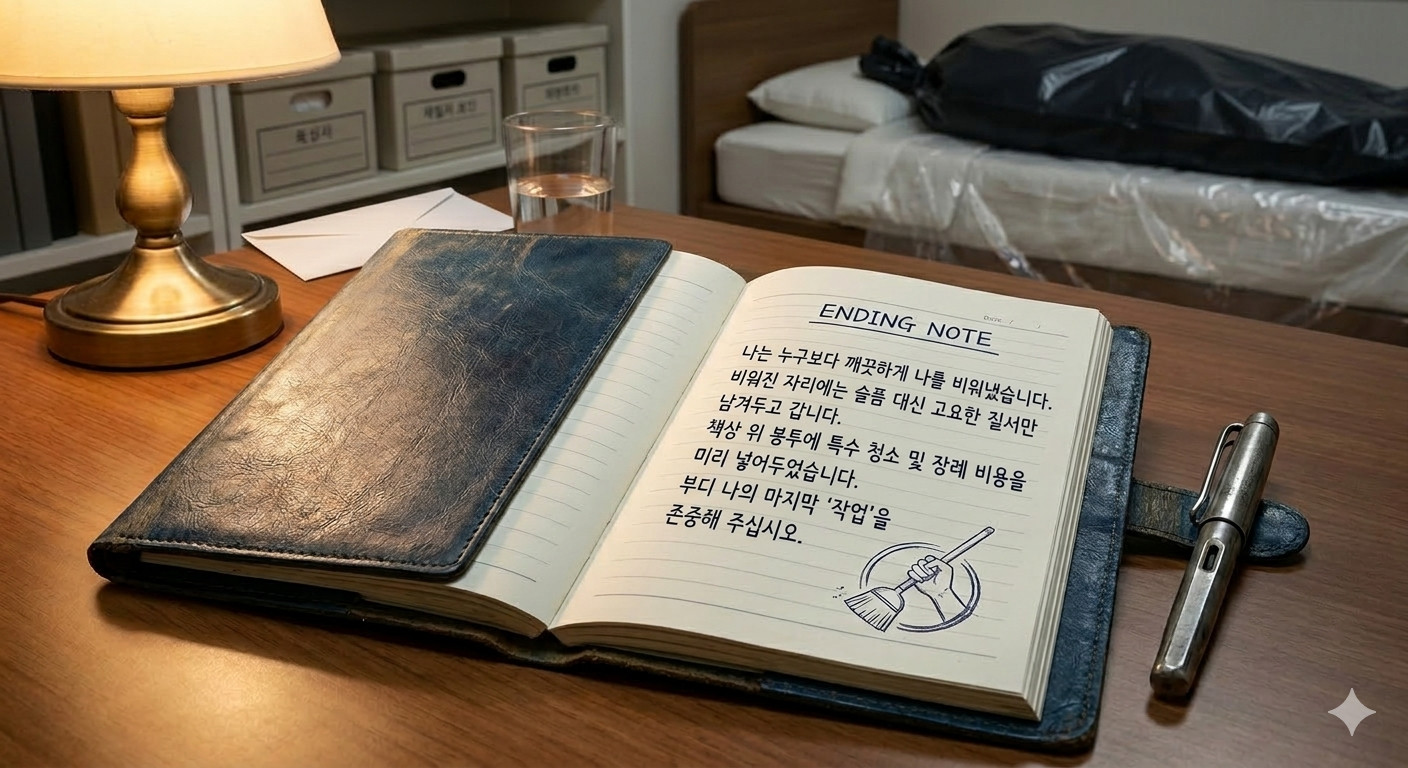 ENDING NOTE
나는 누구보다 깨끗하게 나를 비워냈습니다.
비워진 자리에는 슬픔 대신 고요한 질서만
남겨두고 갑니다.
책상 위 봉투에 특수 청소 및 장례 비용을
미리 넣어두었습니다.
부디 나의 마지막 '작업'을
존중해 주십시오.